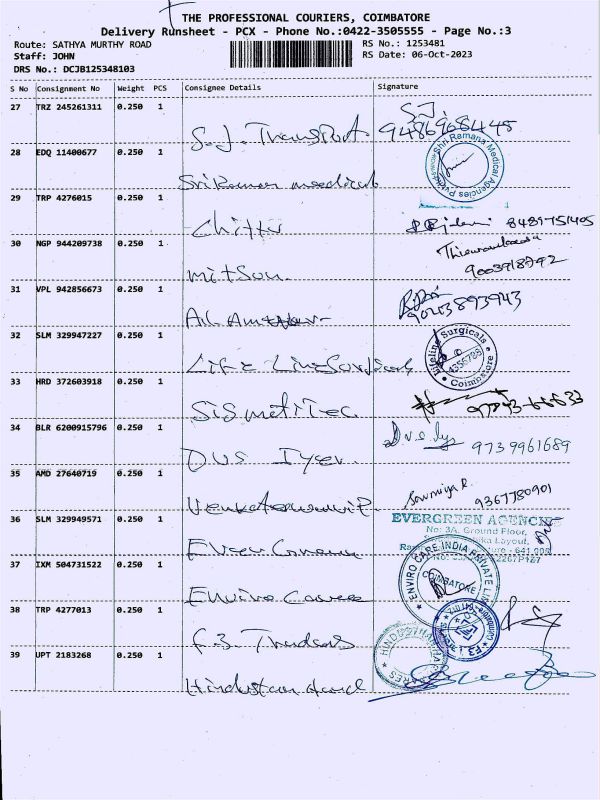 THE PROFESSIONAL COURIERS, COIMBATORE
Delivery Runsheet - PCX - Phone No.:0422-3505555 - Page No.:3
Route: SATHYA MURTHY ROAD
RS No.: 1253481
Staff: JOHN
RS Date: 06-Oct-2023
DRS No.: DCJB125348103
S No Consignment No Weight PCS Consignee Details Signature
27 TRZ 245261311 0.250 1 S.J. Transport S.J. 9486968448
28 EDQ 11400677 0.250 1 Sri Raman medical Shri Ramana Medical Agencies
29 TRP 4276015 0.250 1 Chittu 8489751405
30 NGP 944209738 0.250 1 mitsou 9003918792
31 VPL 942856673 0.250 1
32 SLM 329947227 0.250 1 Life Line Surgicals Lifeline Surgicals Coimbatore
33 HRD 372603918 0.250 1
34 BLR 6200915796 0.250 1 DVS Iyer 9739961689
35 AMD 27640719 0.250 1 Sowmiya R. 9367780901
36 SLM 329949571 0.250 1 EVERGREEN
No: 3A, Ground Floor,
Layout,
641 005
37 IXM 504731522 0.250 1 Enviro Caree ENVIRO CARE INDIA PRIVATE COIMBATORE
38 TRP 4277013 0.250 1 F.3. Traders
39 UPT 2183268 0.250 1 Hindustan